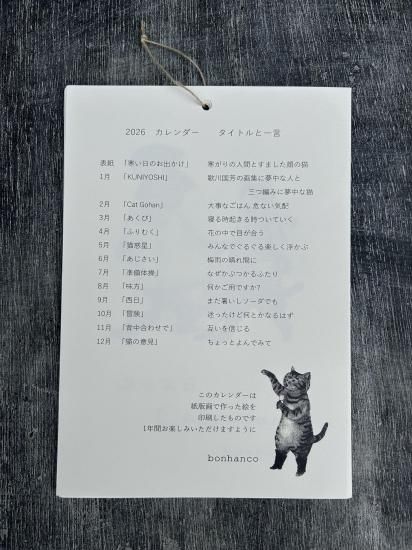 2026 カレンダー タイトルと一言
表紙 「寒い日のお出かけ」 寒がりの人間とすました顔の猫
1月 「KUNIYOSHI」 歌川国芳の画集に夢中な人と
三つ編みに夢中な猫
2月 「Cat Gohan」 大事なごはん 危ない気配
3月 「あくび」 寝る時起きる時ついていく
4月 「ふりむく」 花の中で目が合う
5月 「猫惑星」 みんなでぐるぐる楽しく浮かぶ
6月 「あじさい」 梅雨の晴れ間に
7月 「準備体操」 なぜかぶつかるふたり
8月 「味方」 何かご用ですか?
9月 「西日」 まだ暑いしソーダでも
10月 「冒険」 迷ったけど何とかなるはず
11月 「背中合わせで」 互いを信じる
12月 「猫の意見」 ちょっとよんでみて
このカレンダーは
紙版画で作った絵を
印刷したものです
1年間お楽しみいただけますように
bonhanco